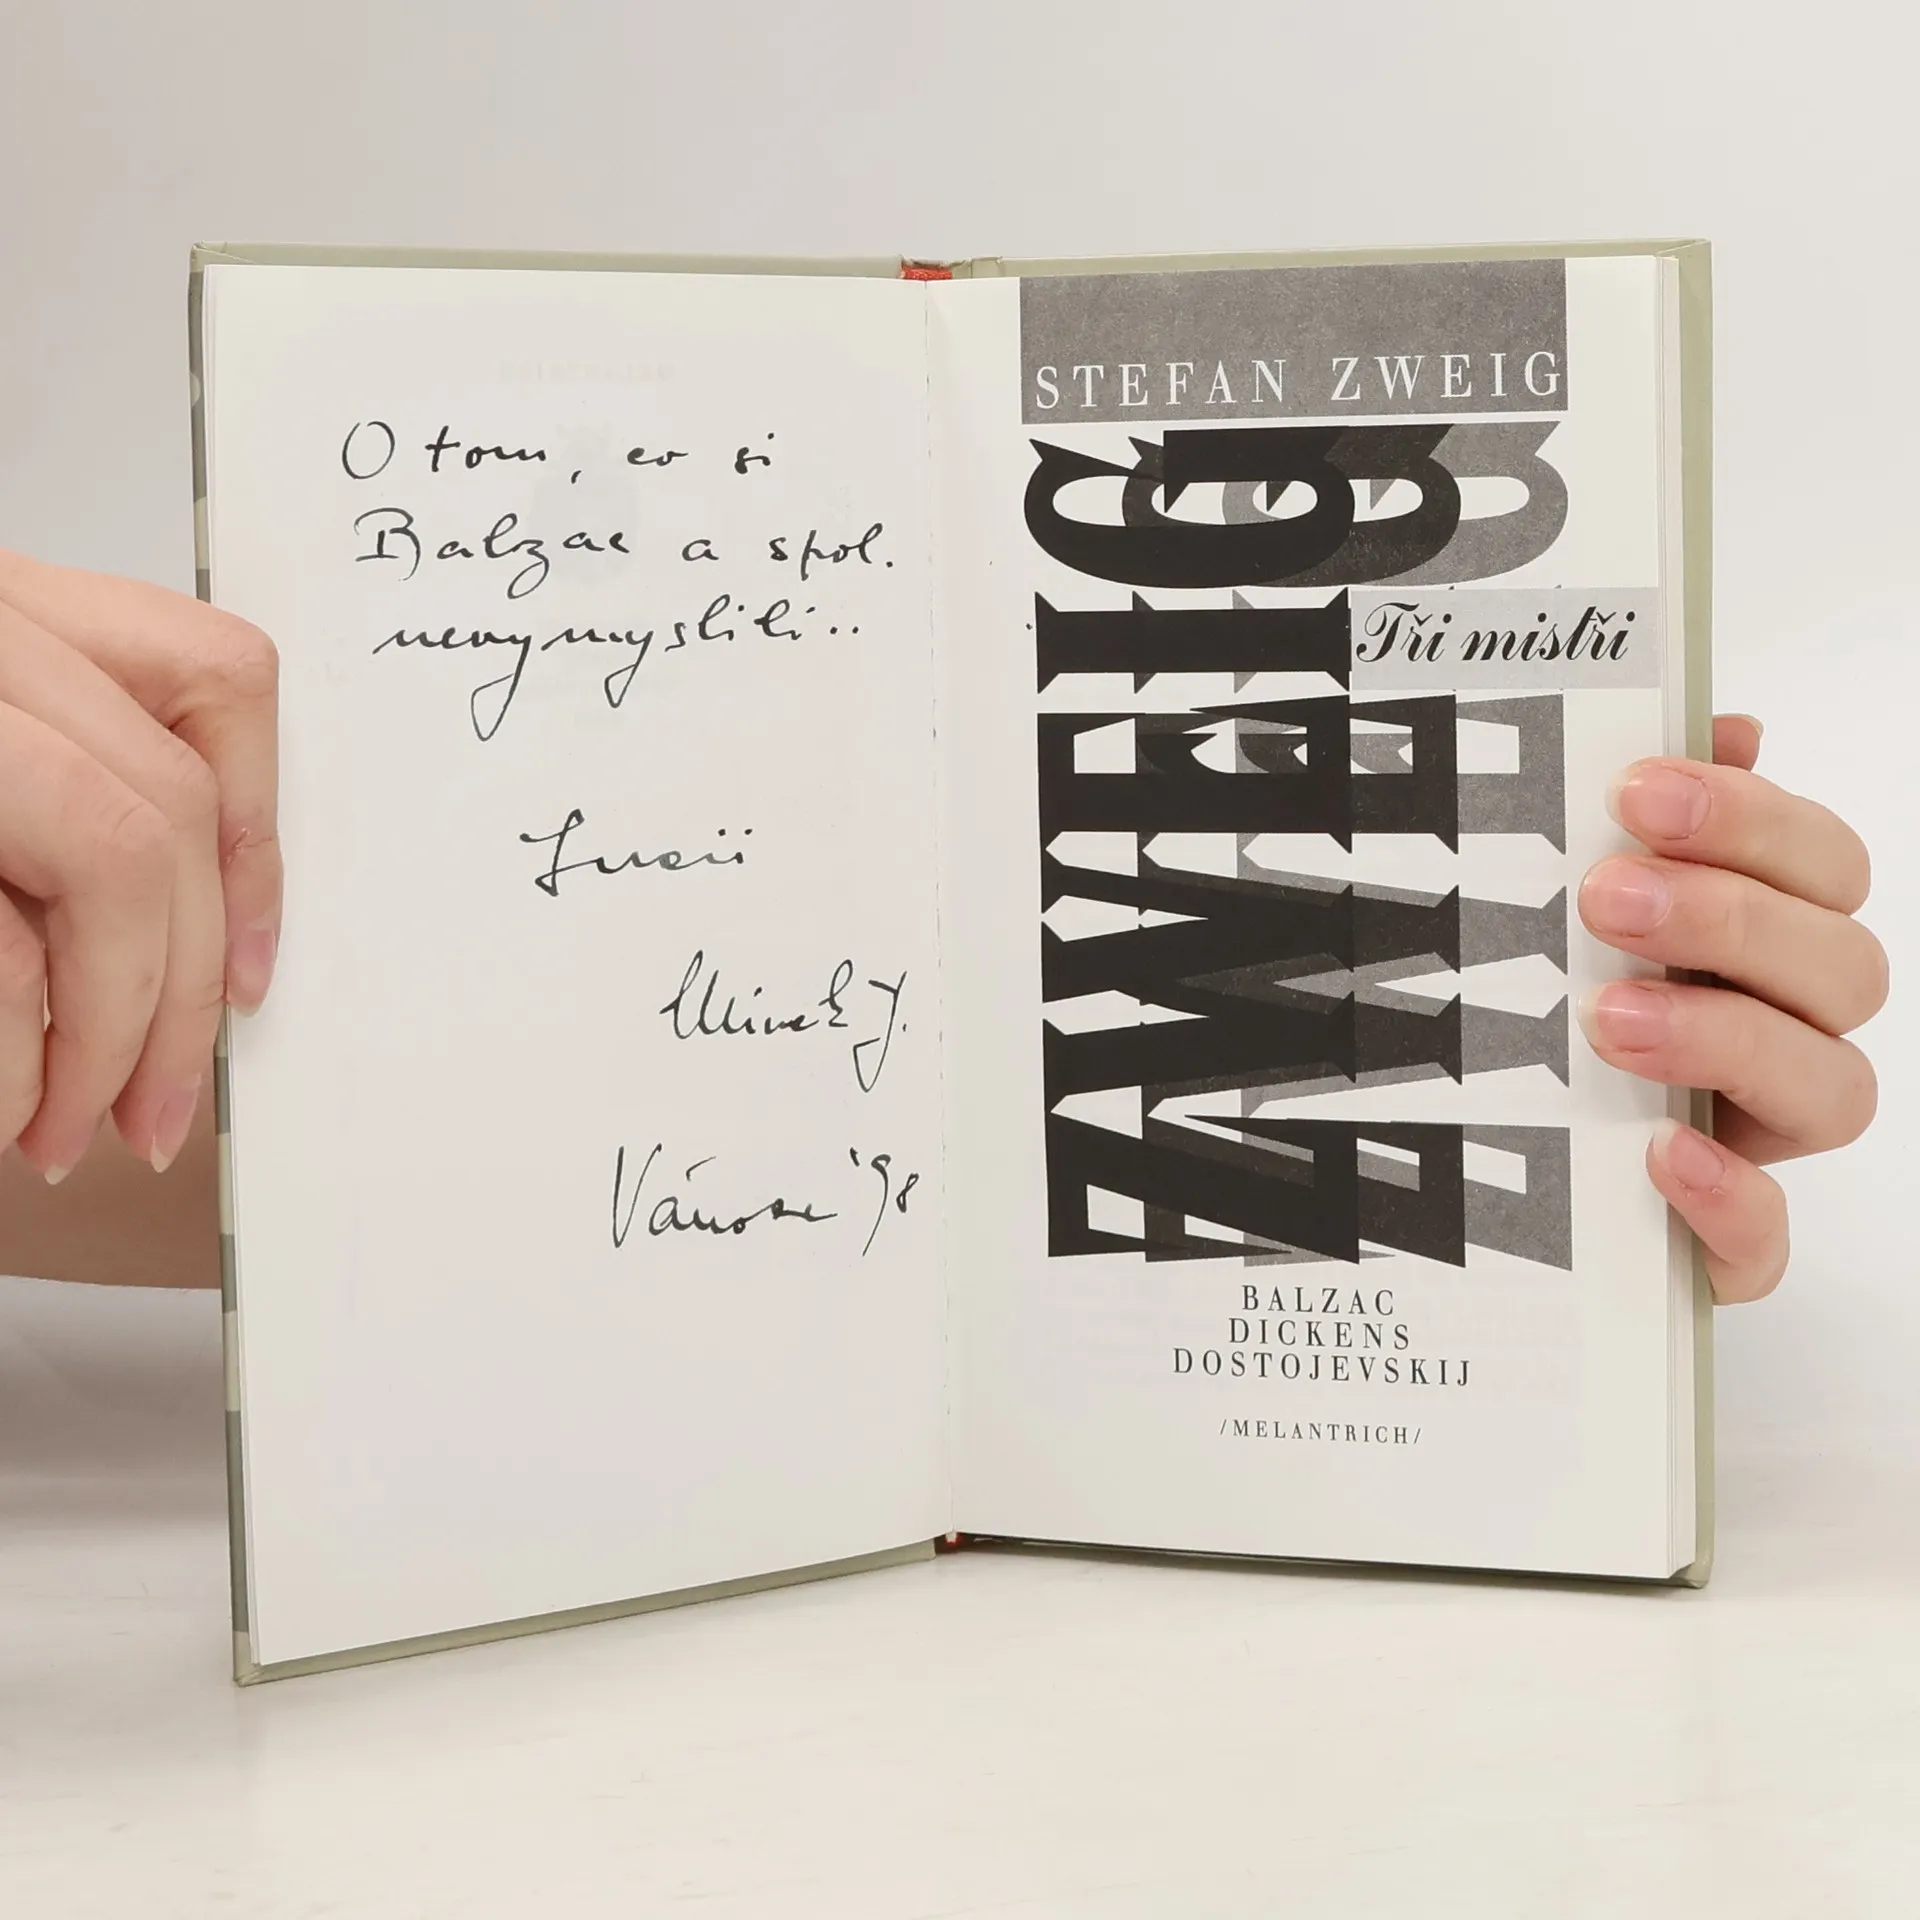 O tom, co si
Balzac a spol.
nevymyslili..
Lucii
J.
Vánoce '98
STEFAN ZWEIG
ZWEIG
Tři mistři
BALZAC
DICKENS
DOSTOJEVSKIJ
/MELANTRICH/